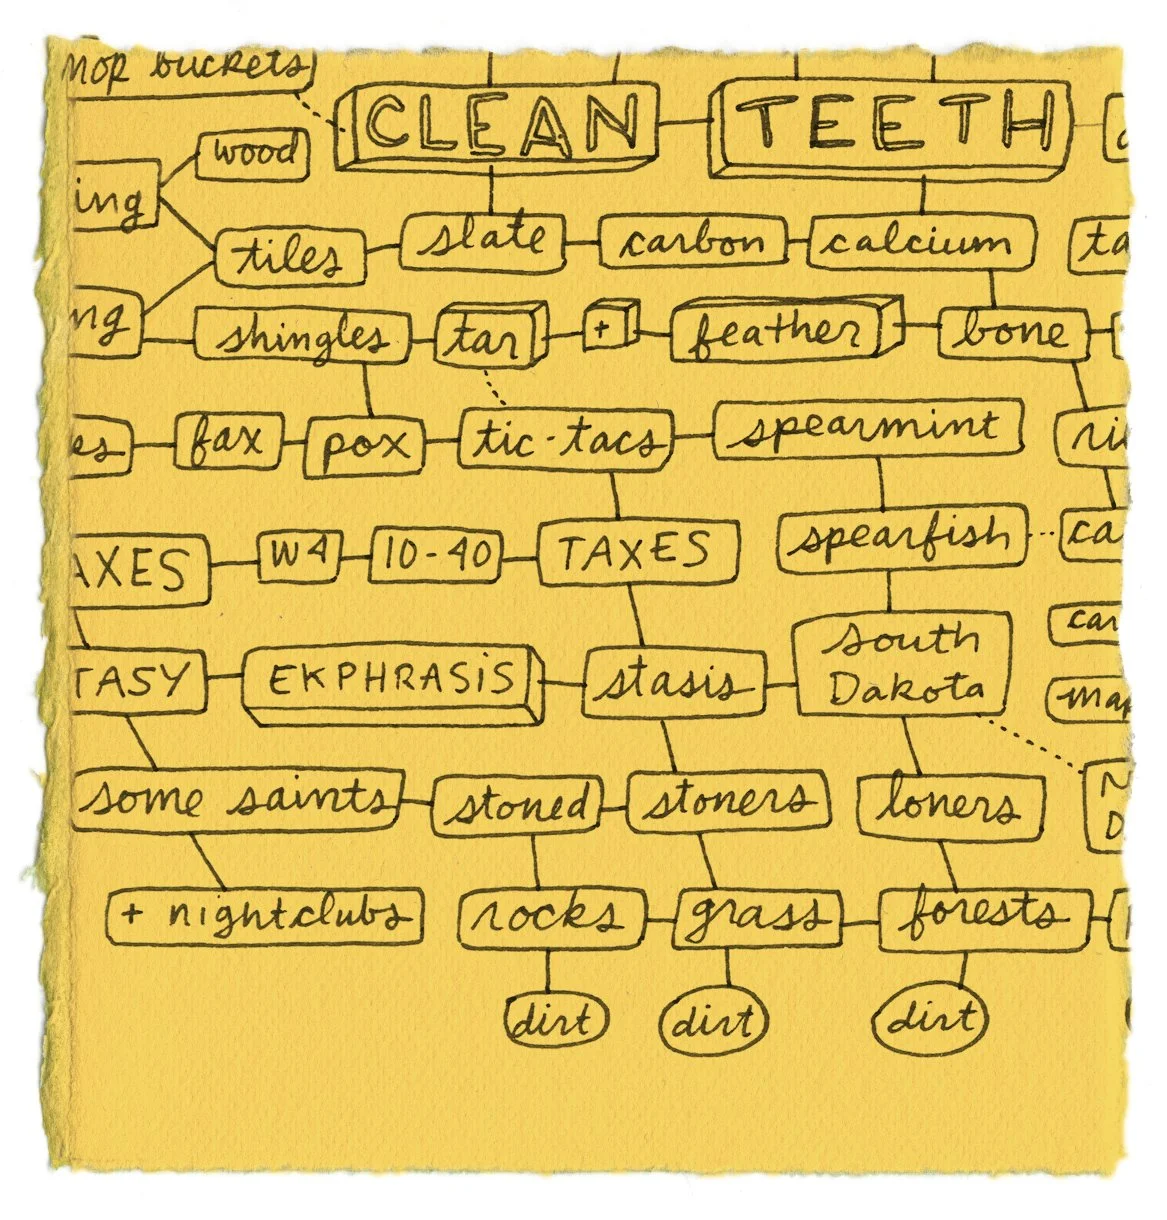 mop buckets
CLEAN TEETH
wood
ing
tiles slate carbon calcium ta
ng shingles tar + feather bone
es fax pox tic-tacs spearmint ri
spearfish ca
AXES W4 10-40 TAXES
car
south
Dakota
TASY EKPHRASiS stasis map
some saints stoned stoners loners N
D
+ nightclubs rocks grass forests
dirt dirt dirt